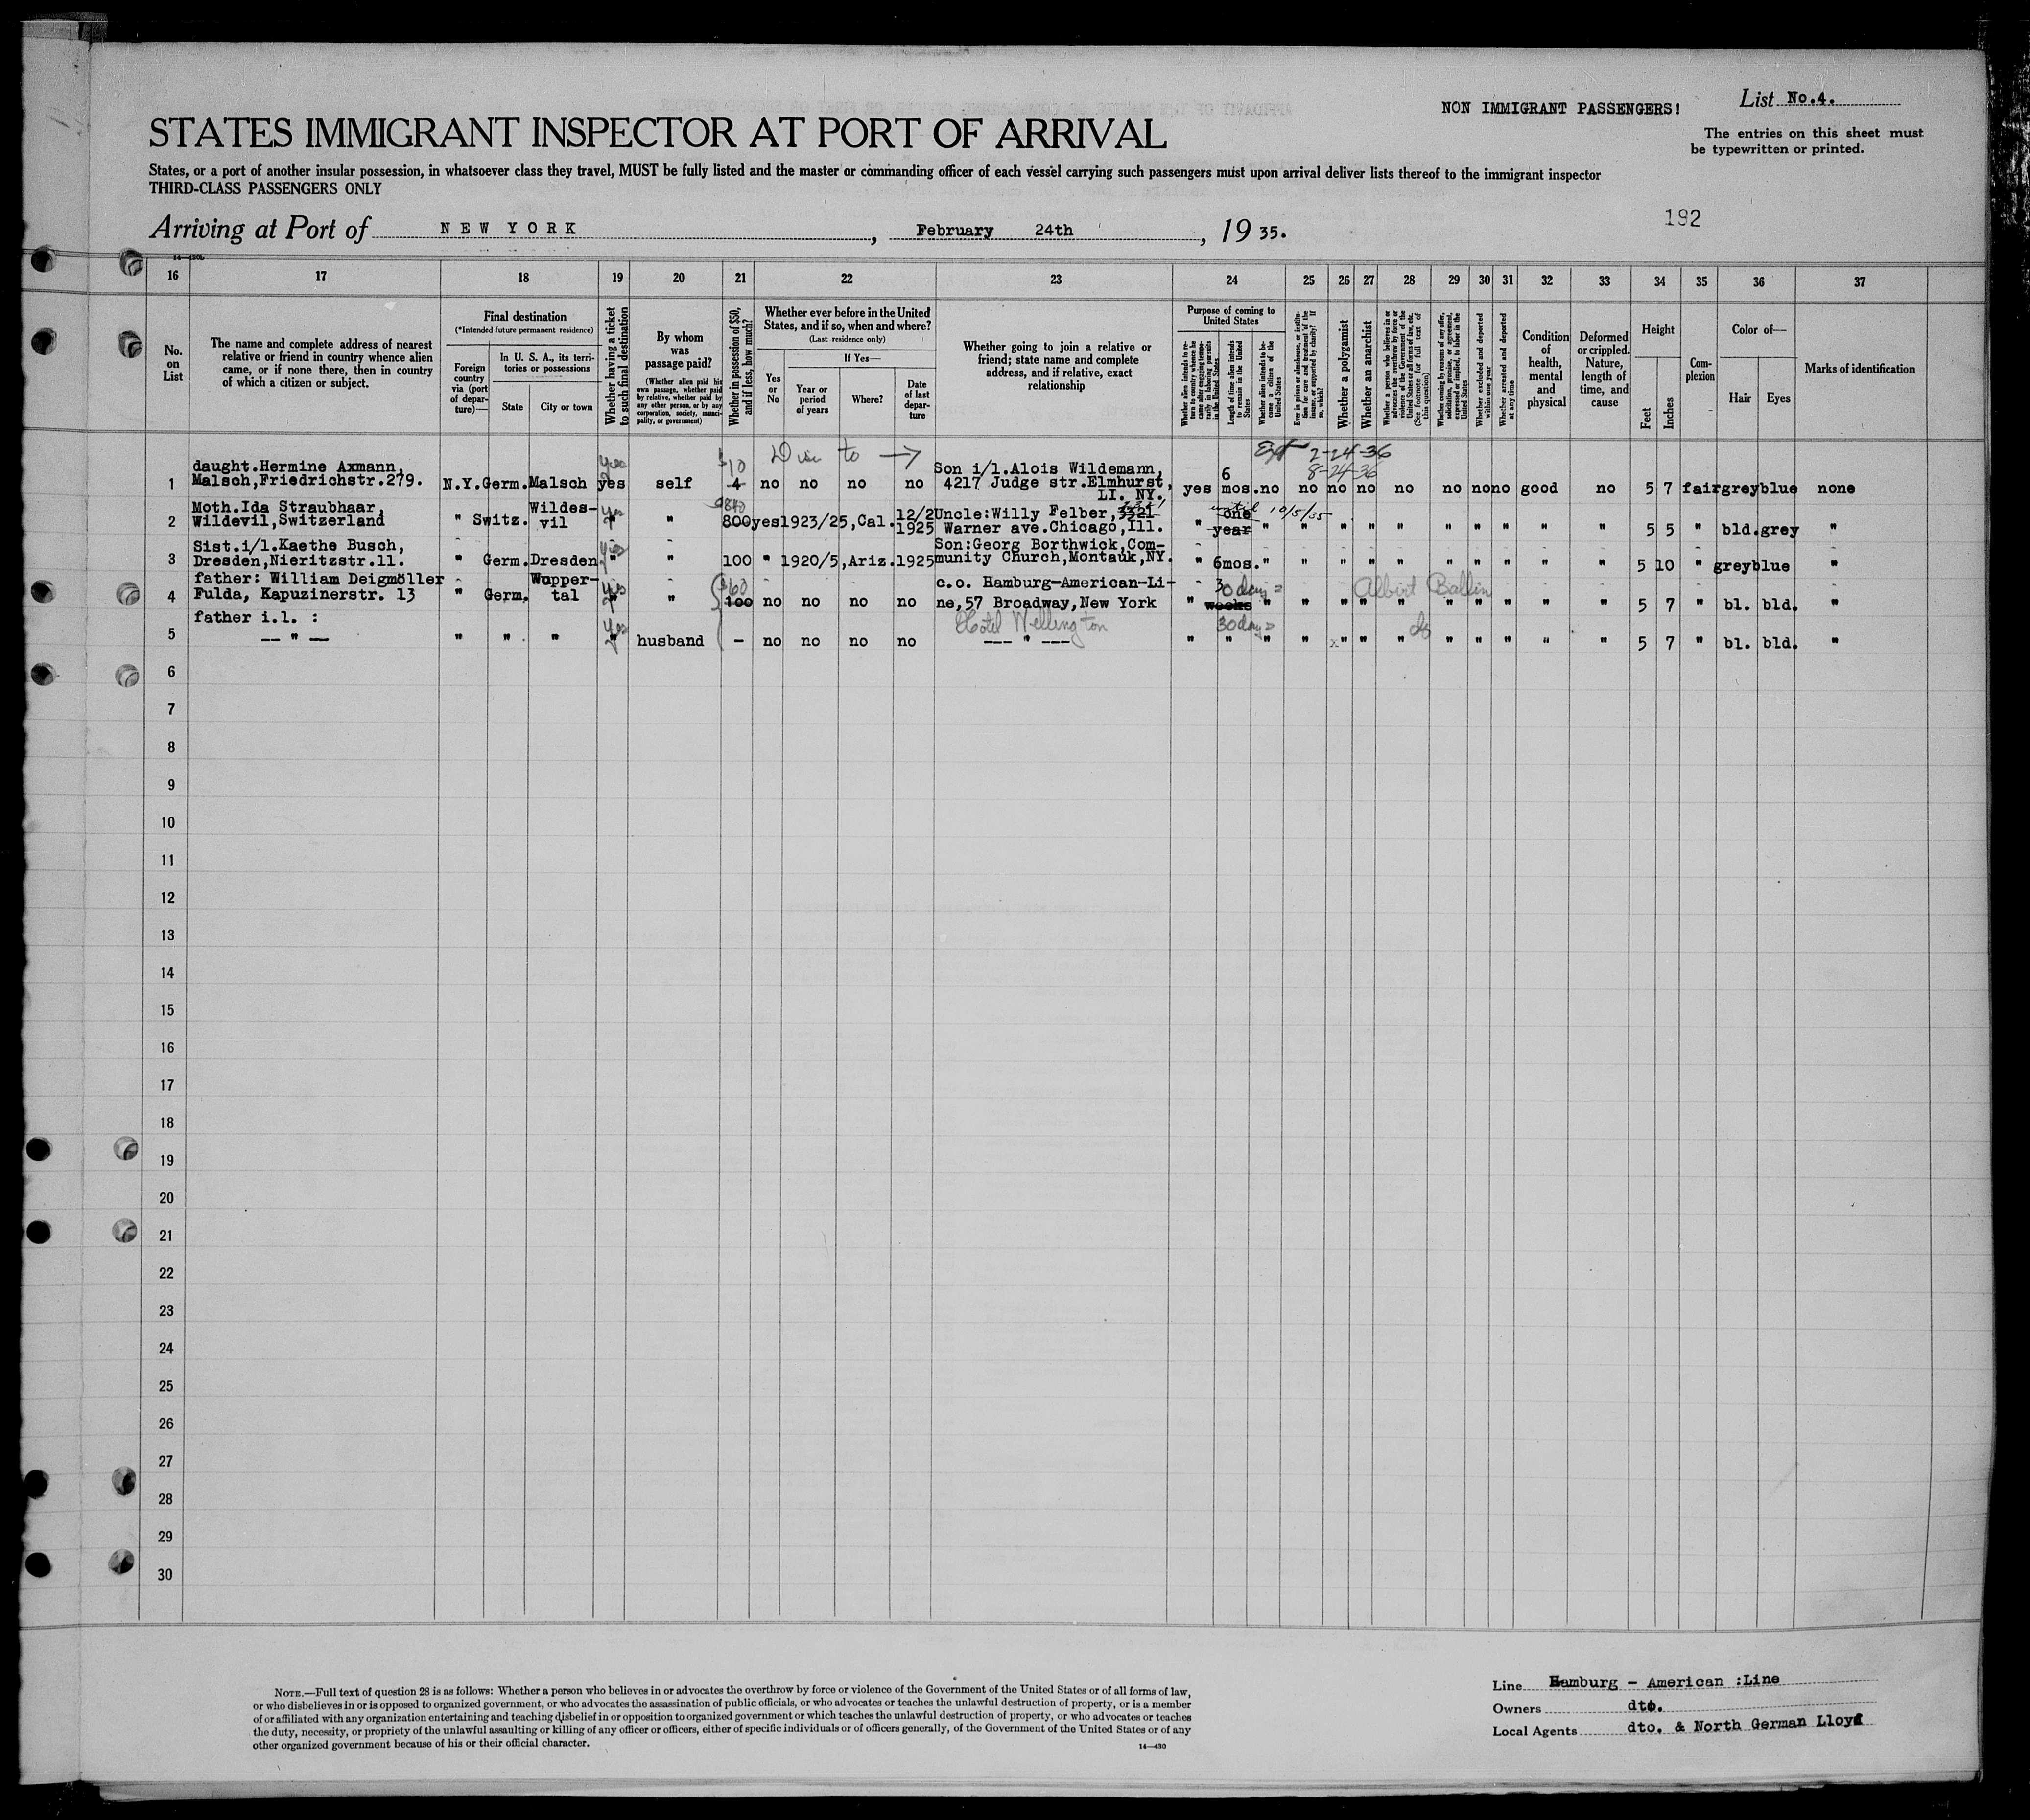 NON IMMIGRANT PASSENGERS!
List No.4.
STATES IMMIGRANT INSPECTOR AT PORT OF ARRIVAL
The entries on this sheet must
be typewritten or printed.
States, or a port of another insular possession, in whatsoever class they travel, MUST be fully listed and the master or commanding officer of each vessel carrying such passengers must upon arrival deliver lists thereof to the immigrant inspector
THIRD-CLASS PASSENGERS ONLY
192
Arriving at Port of NEW YORK, February 24th, 19 35.
16 17 18 19 20 21 22 23 24 25 26 27 28 29 30 31 32 33 34 35 36 37
No. on List
The name and complete address of nearest
relative or friend in country whence alien
came, or if none there, then in country
of which a citizen or subject.
Final destination
(*Intended future permanent residence)
Foreign country via (port of departure)—
In U. S. A., its territories or possessions
State
City or town
Whether having a ticket to such final destination
By whom was passage paid?
(Whether alien paid his own passage, whether paid by relative, whether paid by any other person, or by any corporation, society, municipality, or government)
Whether in possession of $50, and if less, how much?
Whether ever before in the United States, and if so, when and where?
(Last residence only)
Yes or No
If Yes—
Year or period of years
Where?
Date of last departure
Whether going to join a relative or
friend; state name and complete
address, and if relative, exact
relationship
Purpose of coming to United States
Length of time alien intends to remain in the United States
Whether alien intends to become a citizen of the United States
Whether a polygamist
Whether an anarchist
Whether excluded and deported within one year
Whether arrested and deported at any time
Condition of health, mental and physical
Deformed or crippled. Nature, length of time, and cause
Height
Feet
Inches
Complexion
Color of—
Hair
Eyes
Marks of identification
Ext 2-24-36
8-24-36
1 daught.Hermine Axmann,
Malsch,Friedrichstr.279. N.Y. Germ. Malsch yes yes self $10 4 no no no no Son i/l.Alois Wildemann,
4217 Judge str.Elmhurst,
LI. NY. yes 6 mos. no no no no no no no no good no 5 7 fair grey blue none
2 Moth.Ida Straubhaar,
Wildevil,Switzerland " Switz. Wildes-
vil yes " 800 yes 1923/25,Cal. 12/2
1925 Uncle:Willy Felber,3321
Warner ave.Chicago,Ill. " one
year until 10/5/35 " " " " " " " " " " 5 5 " bld. grey "
3 Sist.i/l.Kaethe Busch,
Dresden,Nieritzstr.11. " Germ. Dresden yes " 100 " 1920/5,Ariz. 1925 Son:Georg Borthwick,Com-
munity Church,Montauk,NY. " 6mos. " " " " " " " " " " 5 10 " grey blue "
4 father: William Deigmöller
Fulda, Kapuzinerstr. 13 " Germ. Wupper-
tal yes " $60 100 no no no no c.o. Hamburg-American-Li-
ne,57 Broadway,New York " 30 days weeks " " " " " " " " " " 5 7 " bl. bld. "
Albert Ballin
5 father i.l. :
-- " -- " " " yes " husband - no no no no Hotel Wellington
--- " --- " 30 days " " " " " " do " " " " " 5 7 " bl. bld. "
6
7
8
9
10
11
12
13
14
15
16
17
18
19
20
21
22
23
24
25
26
27
28
29
30
NOTE.—Full text of question 28 is as follows: Whether a person who believes in or advocates the overthrow by force or violence of the Government of the United States or of all forms of law,
or who disbelieves in or is opposed to organized government, or who advocates the assassination of public officials, or who advocates or teaches the unlawful destruction of property, or is a member
of or affiliated with any organization entertaining and teaching disbelief in or opposition to organized government or which teaches the unlawful destruction of property, or who advocates or teaches
the duty, necessity, or propriety of the unlawful assaulting or killing of any officer or officers, either of specific individuals or of officers generally, of the Government of the United States or of any
other organized government because of his or their official character.
14—430
Line Hamburg - American :Line
Owners dto.
Local Agents dto. & North German Lloyd